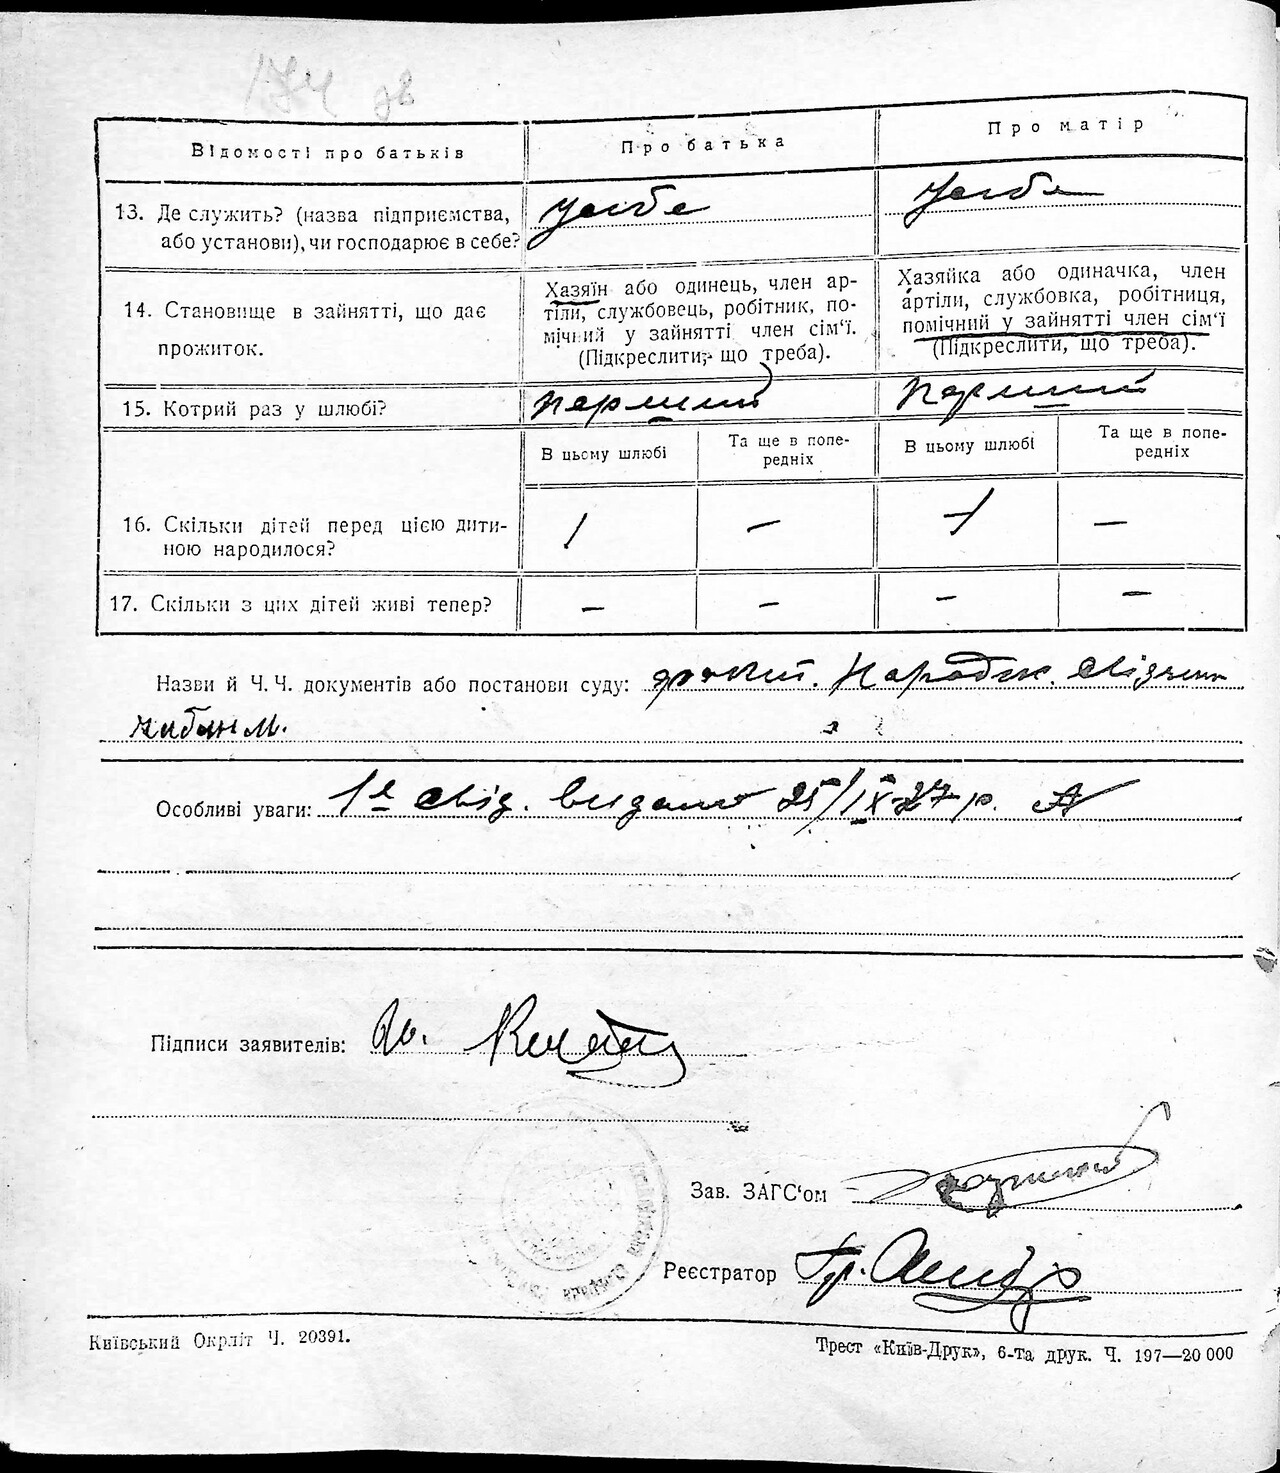 174 зв
Відомості про батьків
Про батька
Про матір
13. Де служить? (назва підприємства,
або установи), чи господарює в себе?
у себе
у себе
14. Становище в зайнятті, що дає
прожиток.
Хазяїн або одинець, член ар-
тіли, службовець, робітник, по-
мічний у зайнятті член сім'ї.
(Підкреслити, що треба).
Хазяйка або одиначка, член
артіли, службовка, робітниця,
помічний у зайнятті член сім'ї
(Підкреслити, що треба).
15. Котрий раз у шлюбі?
перший
перший
В цьому шлюбі
Та ще в попе-
редніх
В цьому шлюбі
Та ще в попе-
редніх
16. Скільки дітей перед цією дити-
ною народилося?
1
—
1
—
17. Скільки з цих дітей живі тепер?
—
—
—
—
Назви й Ч. Ч. документів або постанови суду:
Особливі уваги: 1е свід. видано 25/IX-27 р.
Підписи заявителів:
Зав. ЗАГС'ом
Реєстратор
Київський Окрліт Ч. 20391.
Трест «Київ-Друк», 6-та друк. Ч. 197—20 000